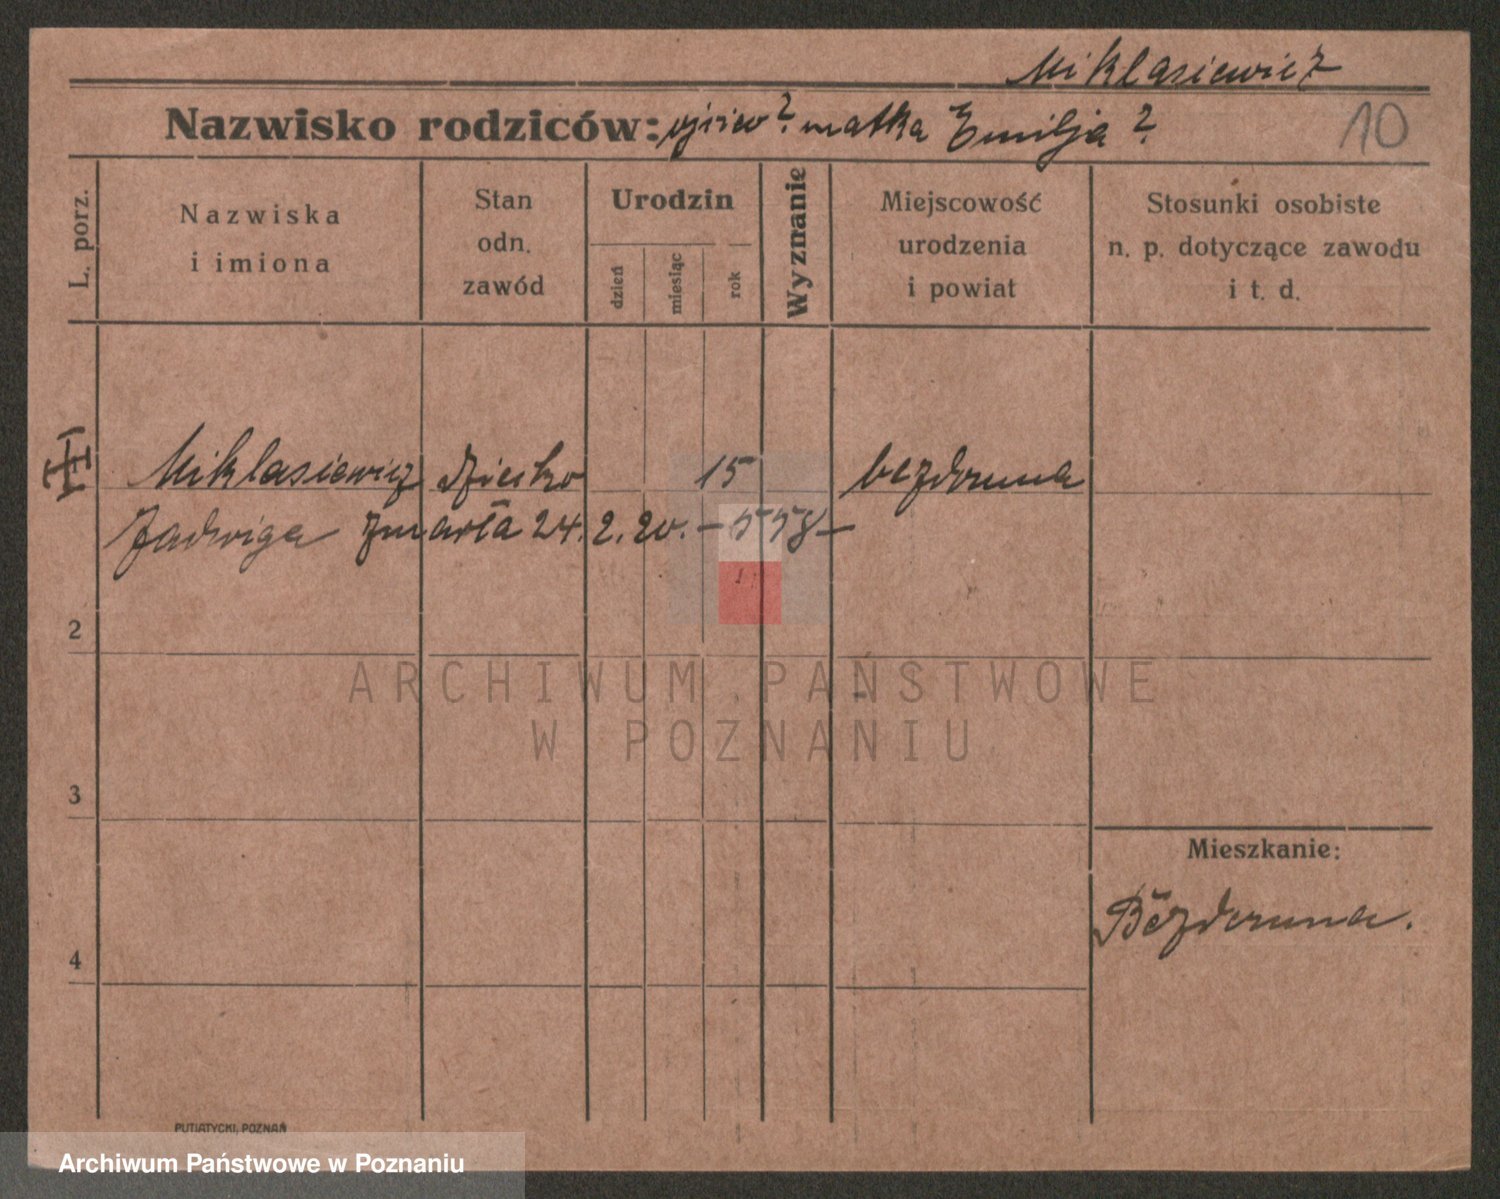 Miklasiewicz
Nazwisko rodziców: ojciec? matka Emilja?
10
L. porz.
Nazwiska
i imiona
Stan
odn.
zawód
Urodzin
dzień
miesiąc
rok
Wyznanie
Miejscowość
urodzenia
i powiat
Stosunki osobiste
n. p. dotyczące zawodu
i t. d.
Miklasiewicz dziecko 15 bezdomna
Jadwiga zmarła 24.2.20.
2
ARCHIWUM PAŃSTWOWE
W POZNANIU
3
Mieszkanie:
Bezdomna.
4
PUTIATYCKI, POZNAŃ
Archiwum Państwowe w Poznaniu